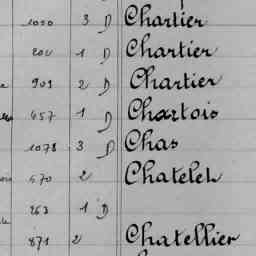 1050 3 D Chartier
202 1 D Chartier
909 2 D Chartier
457 1 D Chartois
1078 3 D Chas
570 2 Chatelet
263 1 D
871 2 Chatellier